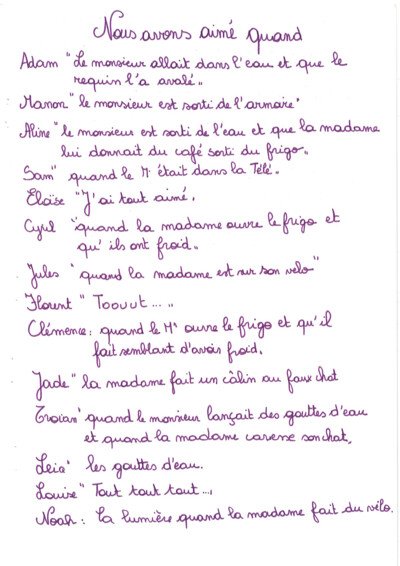 Nous avons aimé quand
Adam " Le monsieur allait dans l'eau et que le
requin l'a avalé..
Manon " le monsieur est sorti de l'armoire'
Aline " le monsieur est sorti de l'eau et que la madame
lui donnait du café sorti du frigo..
Sam " quand le Mr était dans la Télé..
Eloïse " J'ai tout aimé.
Cyril " quand la madame ouvre le frigo et
qu'ils ont froid..
Jules " quand la madame est sur son vélo "
Florent " Toouut .....
Clémence : quand le Mr ouvre le frigo et qu'il
fait semblant d'avoir froid.
Jade " la madame fait un câlin au faux chat
Troian " quand le monsieur lançait des gouttes d'eau
et quand la madame caresse son chat.
Leia " les gouttes d'eau.
Louise " Tout tout tout ....
Noah : la lumière quand la madame fait du vélo.